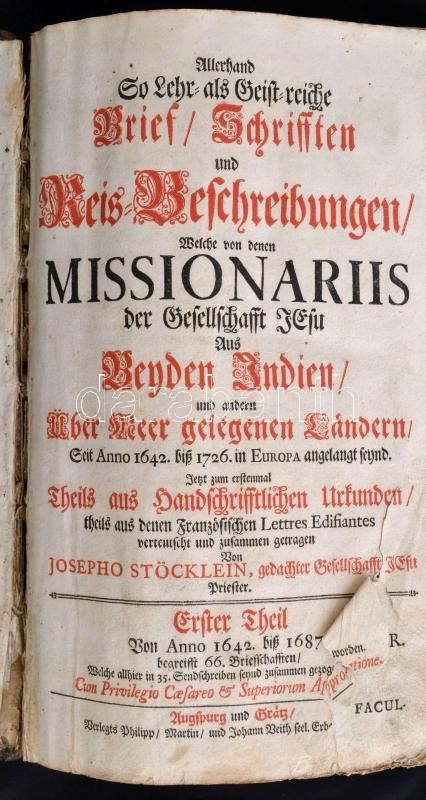 Allerhand
So Lehr- als Geist-reiche
Brief/ Schrifften
und
Reis-Beschreibungen/
Welche von denen
MISSIONARIIS
der Gesellschafft JEsu
Aus
Beyden Indien/
und andern
Über Meer gelegenen Ländern/
Seit Anno 1642. biß 1726. in EUROPA angelangt seynd.
Jetzt zum erstenmal
Theils aus Handschrifftlichen Urkunden/
theils aus denen Französischen Lettres Edifiantes
verteutscht und zusammen getragen
Von
JOSEPHO STÖCKLEIN, gedachter Gesellschafft JEsu
Priester.
Erster Theil
Von Anno 1642. biß 1687
R.
begreifft 66. Brieffschafften/
Welche allhier in 35. Sendschreiben seynd zusammen gezog
worden.
Cum Privilegio Cæsareo & Superiorum Approbatione.
Augspurg und Grätz/
FACUL-
Verlegts Philipp/ Martin/ und Johann Veith seel. Erb-
darabanth